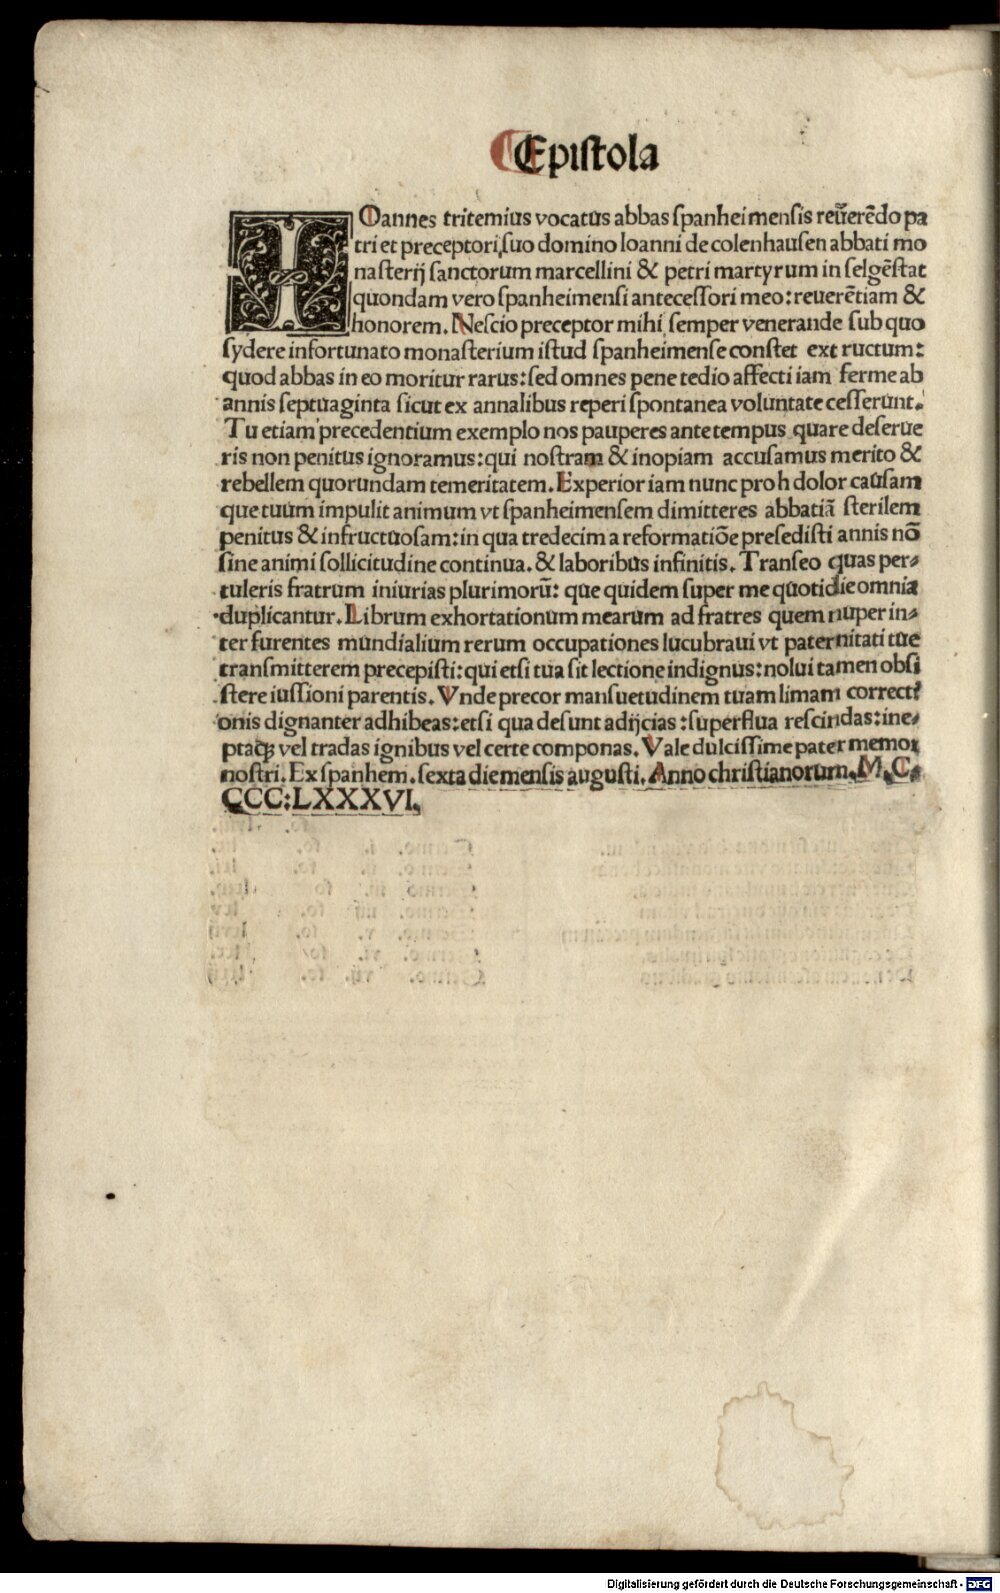 Epistola
IOannes tritemius vocatus abbas spanheimensis reuerẽdo pa
tri et preceptori suo domino Ioanni de colenhausen abbati mo
nasterij sanctorum marcellini & petri martyrum in selgẽstat
quondam vero spanheimensi antecessori meo: reuerẽtiam &
honorem. Nescio preceptor mihi semper venerande sub quo
sydere infortunato monasterium istud spanheimense constet extructum:
quod abbas in eo moritur rarus: sed omnes pene tedio affecti iam ferme ab
annis septuaginta sicut ex annalibus reperi spontanea voluntate cesserunt.
Tu etiam precedentium exemplo nos pauperes ante tempus quare deserue
ris non penitus ignoramus: qui nostram & inopiam accusamus merito &
rebellem quorundam temeritatem. Experior iam nunc proh dolor causam
que tuum impulit animum vt spanheimensem dimitteres abbatiã sterilem
penitus & infructuosam: in qua tredecim a reformatiõe presedisti annis nõ
sine animi sollicitudine continua. & laboribus infinitis. Transeo quas per-
tuleris fratrum iniurias plurimorũ: que quidem super me quotidie omnia
duplicantur. Librum exhortationum mearum ad fratres quem nuper in-
ter furentes mundialium rerum occupationes lucubraui vt paternitati tue
transmitterem precepisti: qui etsi tua sit lectione indignus: nolui tamen obsi
stere iussioni parentis. Vnde precor mansuetudinem tuam limam correcti
onis dignanter adhibeas: etsi qua desunt adijcias: superflua rescindas: ine-
ptaqȝ vel tradas ignibus vel certe componas. Vale dulcissime pater memor
nostri. Ex spanhem. sexta die mensis augusti. Anno christianorum. M. C.
CCC:LXXXVI.
Digitalisierung gefördert durch die Deutsche Forschungsgemeinschaft - DFG